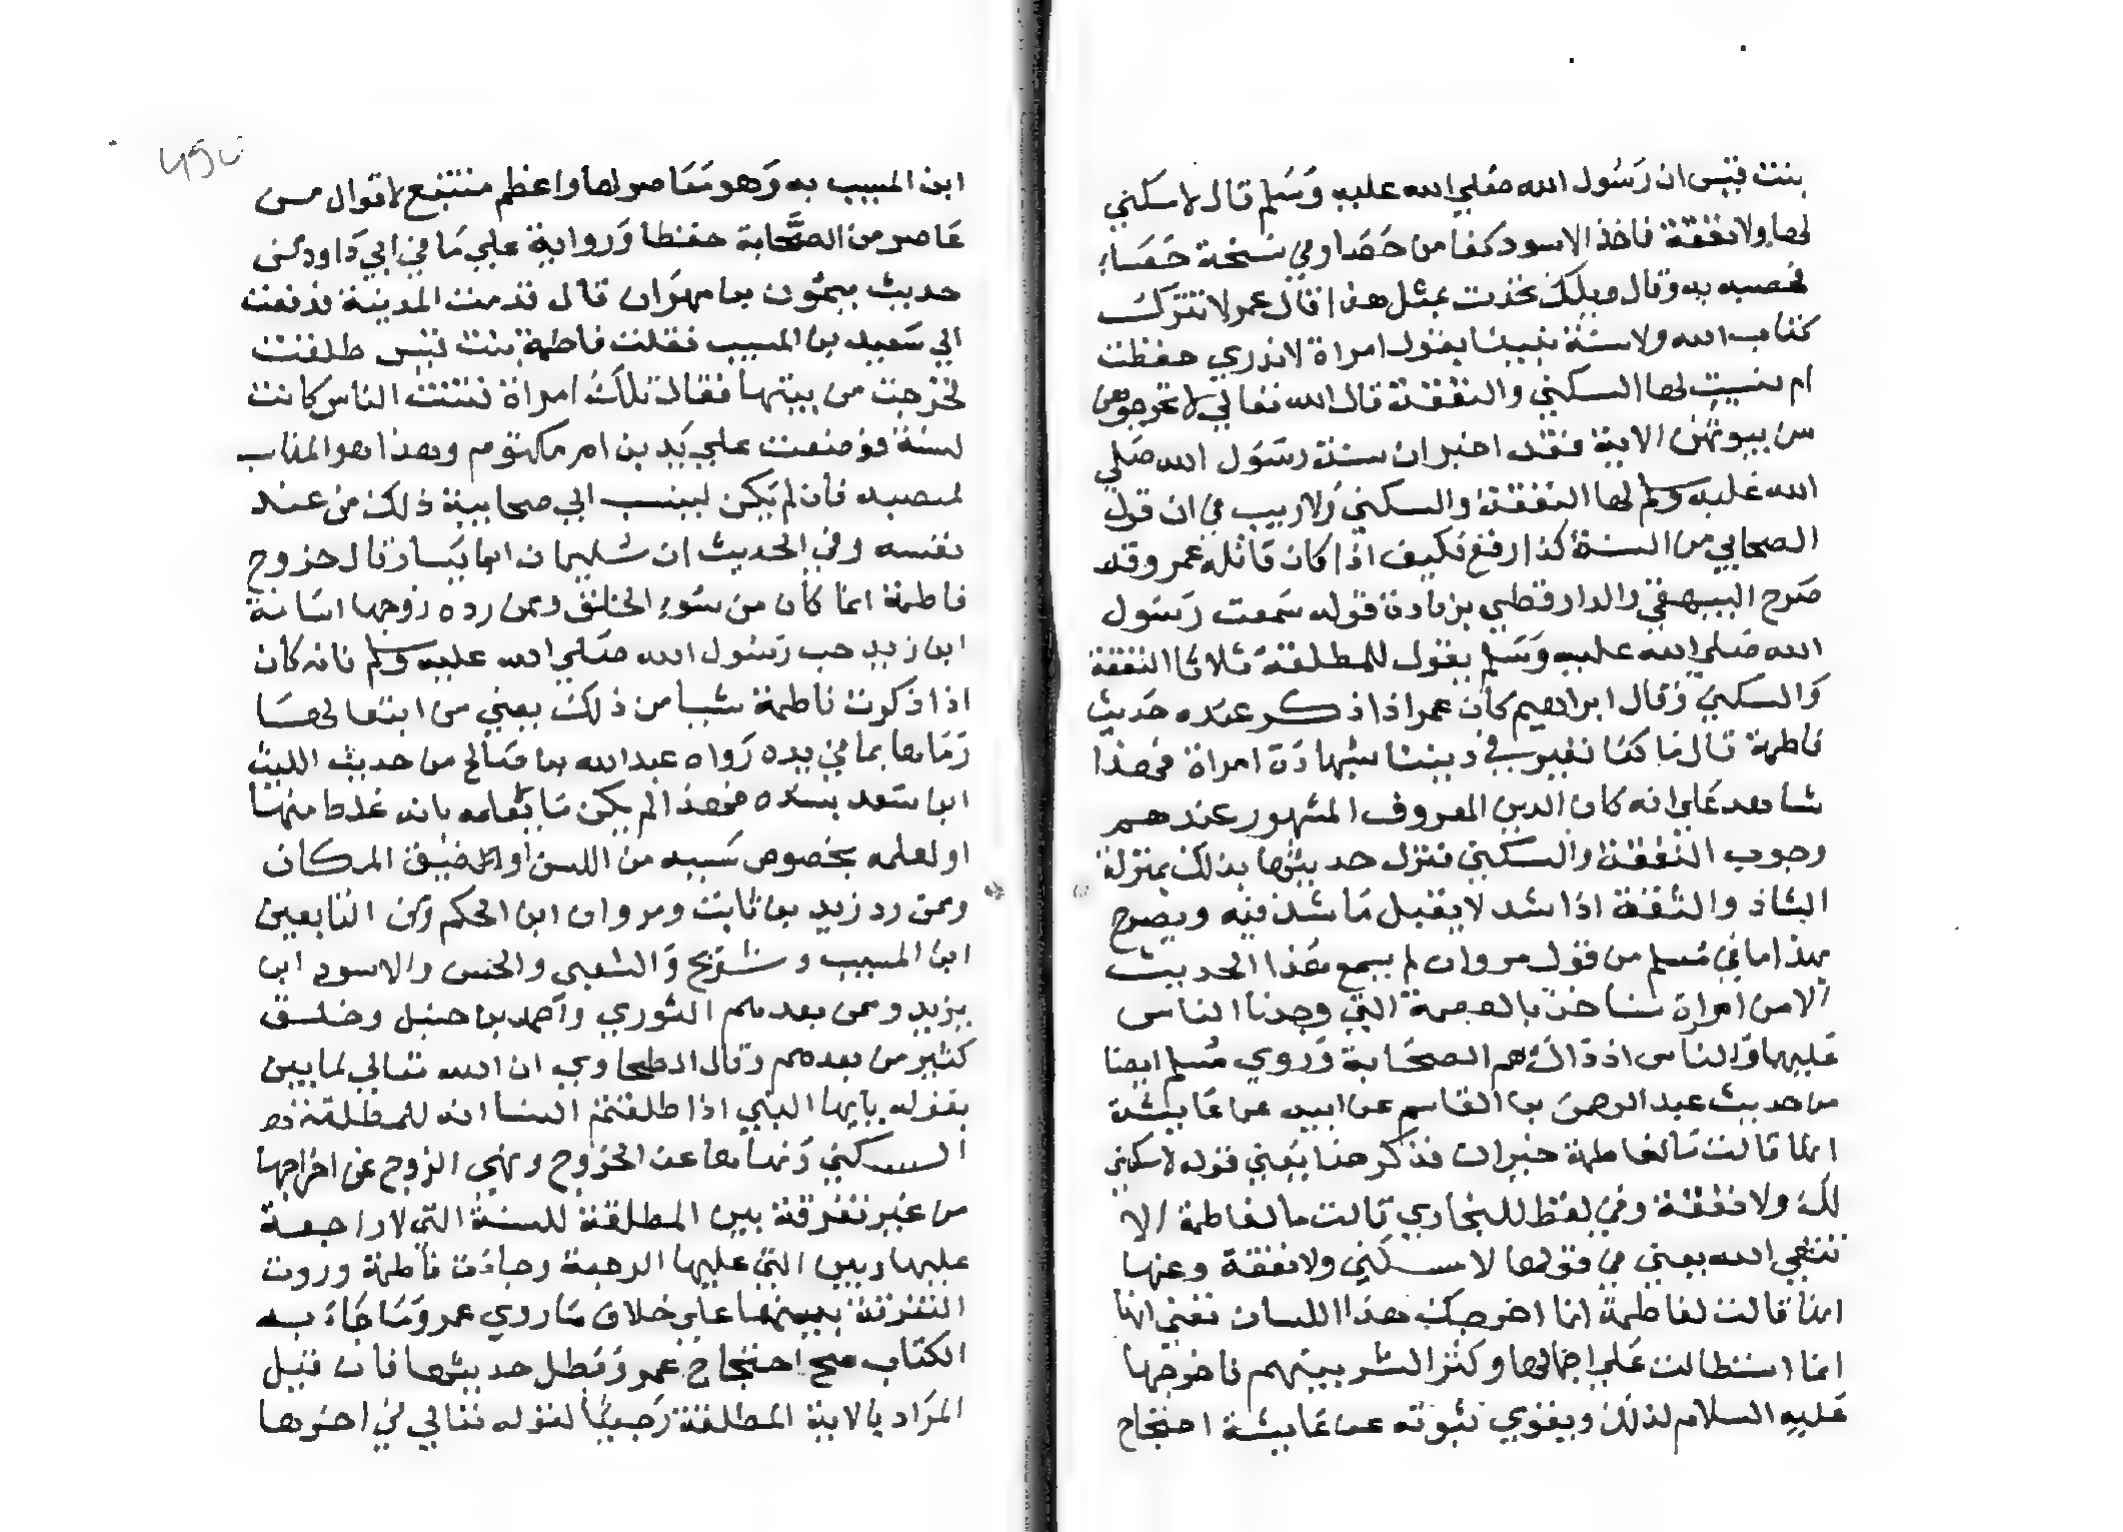 بنت قيس ان رسول الله صلي الله عليه وسلم قال لا سكني
لها ولا نفقة فاخذ الاسود كفا من حصا وفي نسخة حصباء
فحصبه به وقال ويلك تحدث بمثل هذا قال عمر لا نترك
كتاب الله ولا سنة نبينا بقول امراة لا ندري حفظت
ام نسيت لها السكني والنفقة قال الله تعالي لا تخرجوهن
من بيوتهن الاية فقد اخبر ان سنة رسول الله صلي
الله عليه وسلم لها النفقة والسكني ولا ريب في ان قول
الصحابي من السنة كذا رفع فكيف اذا كان قائله عمر وقد
صرح البيهقي والدارقطني بزيادة قوله سمعت رسول
الله صلي الله عليه وسلم يقول للمطلقة ثلاثا النفقة
والسكني وقال ابراهيم كان عمر اذا ذكر عنده حديث
فاطمة قال ما كنا نغير في ديننا شهادة امراة فهذا
شاهد علي انه كان الدين المعروف المشهور عندهم
وجوب النفقة والسكني فنزل حديثها بذلك بمنزلة
الشاذ والثقة اذا شذ لا يقبل ما شذ فيه ويصرح
بهذا ما في مسلم من قول مروان لم يسمع هذا الحديث
الا من امراة سناخذ بالعصمة التي وجدنا الناس
عليها والناس اذ ذاك هم الصحابة وروي مسلم ايضا
من حديث عبد الرحمن بن القاسم عن ابيه عن عايشة
انها قالت ما لفاطمة خير ان تذكر هذا يعني قوله لا سكني
لك ولا نفقة وفي لفظ للبخاري قالت ما لفاطمة الا
تتقي الله يعني في قولها لا سكني ولا نفقة وعنها
انها قالت لفاطمة انما اخرجك هذا اللسان تعني انها
انما استطالت علي احمائها وكثر الشر بينهم فاخرجها
عليه السلام لذلك ويقوي ثبوته عن عايشة احتجاج
ابن المسيب به وهو معاصر لها واعظم متتبع لاقوال من
عاصر من الصحابة حفظا ورواية علي ما في ابي داود من
حديث ميمون بن مهران قال قدمت المدينة فدفعت
الي سعيد بن المسيب فقلت فاطمة بنت قيس طلقت
فخرجت من بيتها فقال تلك امراة فتنت الناس كانت
لسنة فوضعت علي يد بن ام مكتوم وهذا هو المناسب
لمنصبه فان لم يكن لينسب الي صحابية ذلك من عند
نفسه وفي الحديث ان سليمان بن يسار قال خروج
فاطمة انما كان من سوء الخلق وممن رده زوجها اسامة
ابن زيد حب رسول الله صلي الله عليه وسلم فانه كان
اذا ذكرت فاطمة شيا من ذلك يعني من انتقالها
رماها بما في يده رواه عبد الله بن صالح من حديث الليث
ابن سعد بسنده فهذا لم يكن ما بعلمه بانه غلط منها
او لعلمه بخصوص سببه من اللسن او ضيق المكان
وممن رد زيد بن ثابت ومروان ابن الحكم ومن التابعين
ابن المسيب وشريح والشعبي والحسن والاسود ابن
يزيد وممن بعدهم الثوري واحمد بن حنبل وخلق
كثير من بعدهم وقال الطحاوي ان الله تعالي لما بين
بقوله يايها النبي اذا طلقتم النسا انه للمطلقة
السكني ونهاها عن الخروج ونهي الزوج عن اخراجها
من غير تفرقة بين المطلقة للسنة التي لا راجعة
عليها وبين التي عليها الرجعة وجاءت فاطمة وروت
التفرقة بينهما علي خلاف ما روي عمر وما جاء به
الكتاب صح احتجاج عمر وبطل حديثها فان قيل
المراد بالاية المطلقة رجعيا لقوله تعالي في اخرها